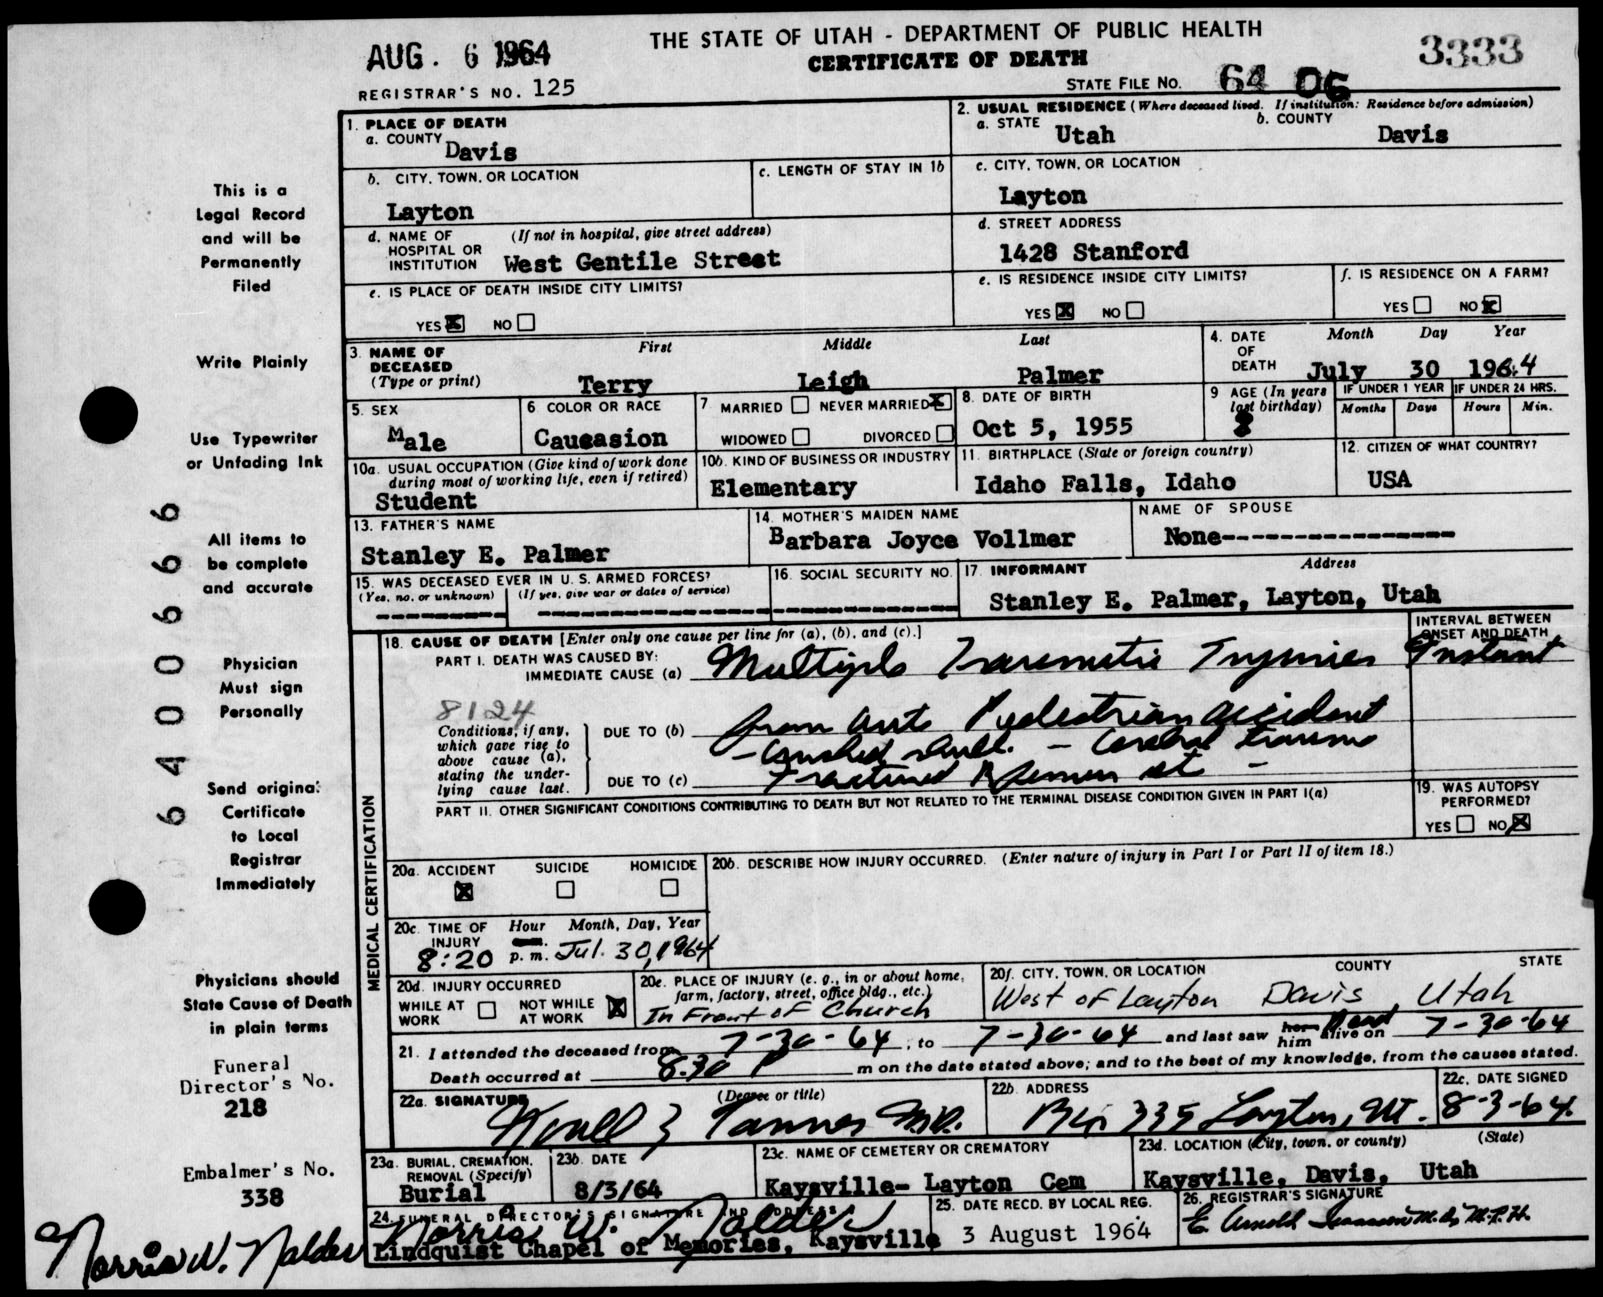 AUG. 6 1964
THE STATE OF UTAH - DEPARTMENT OF PUBLIC HEALTH
CERTIFICATE OF DEATH
3333
REGISTRAR'S NO. 125
STATE FILE NO. 64 06
This is a
Legal Record
and will be
Permanently
Filed
Write Plainly
Use Typewriter
or Unfading Ink
All items to
be complete
and accurate
Physician
Must sign
Personally
Send original
Certificate
to Local
Registrar
Immediately
Physicians should
State Cause of Death
in plain terms
Funeral
Director's No.
218
Embalmer's No.
338
Norris W. Nalder
64 00 6066
1. PLACE OF DEATH
a. COUNTY Davis
2. USUAL RESIDENCE (Where deceased lived. If institution: Residence before admission)
a. STATE Utah b. COUNTY Davis
b. CITY, TOWN, OR LOCATION Layton
c. LENGTH OF STAY IN 1b
c. CITY, TOWN, OR LOCATION
Layton
d. NAME OF HOSPITAL OR INSTITUTION (If not in hospital, give street address) West Gentile Street
d. STREET ADDRESS
1428 Stanford
e. IS PLACE OF DEATH INSIDE CITY LIMITS?
YES X NO
e. IS RESIDENCE INSIDE CITY LIMITS?
YES X NO
f. IS RESIDENCE ON A FARM?
YES NO X
3. NAME OF DECEASED (Type or print)
First Middle Last
Terry Leigh Palmer
4. DATE OF DEATH Month Day Year
July 30 1964
5. SEX
Male
6 COLOR OR RACE
Caucasion
7 MARRIED NEVER MARRIED X
WIDOWED DIVORCED
8. DATE OF BIRTH
Oct 5, 1955
9 AGE (In years last birthday)
8
IF UNDER 1 YEAR IF UNDER 24 HRS.
Months Days Hours Min.
10a. USUAL OCCUPATION (Give kind of work done during most of working life, even if retired)
Student
10b. KIND OF BUSINESS OR INDUSTRY
Elementary
11. BIRTHPLACE (State or foreign country)
Idaho Falls, Idaho
12. CITIZEN OF WHAT COUNTRY?
USA
13. FATHER'S NAME
Stanley E. Palmer
14. MOTHER'S MAIDEN NAME
Barbara Joyce Vollmer
NAME OF SPOUSE
None----------------
15. WAS DECEASED EVER IN U. S. ARMED FORCES?
(Yes, no, or unknown) (If yes, give war or dates of service)
16. SOCIAL SECURITY NO.
17. INFORMANT Address
Stanley E. Palmer, Layton, Utah
MEDICAL CERTIFICATION
18. CAUSE OF DEATH [Enter only one cause per line for (a), (b), and (c).]
INTERVAL BETWEEN ONSET AND DEATH
PART I. DEATH WAS CAUSED BY:
IMMEDIATE CAUSE (a) Multiple Traumatic Injuries Instant
8124
Conditions, if any,
which gave rise to
above cause (a),
stating the under-
lying cause last.
DUE TO (b) from auto Pedestrian accident
- crushed skull. - Cerebral trauma
DUE TO (c) Fractured R femur
PART II. OTHER SIGNIFICANT CONDITIONS CONTRIBUTING TO DEATH BUT NOT RELATED TO THE TERMINAL DISEASE CONDITION GIVEN IN PART I(a)
19. WAS AUTOPSY PERFORMED?
YES NO X
20a. ACCIDENT SUICIDE HOMICIDE
X
20b. DESCRIBE HOW INJURY OCCURRED. (Enter nature of injury in Part I or Part II of item 18.)
20c. TIME OF INJURY Hour Month, Day, Year
8:20 p. m. Jul. 30, 1964
20d. INJURY OCCURRED
WHILE AT WORK NOT WHILE AT WORK X
20e. PLACE OF INJURY (e. g., in or about home, farm, factory, street, office bldg., etc.)
In Front of Church
20f. CITY, TOWN, OR LOCATION COUNTY STATE
West of Layton Davis, Utah
21. I attended the deceased from 7-30-64, to 7-30-64 and last saw him Dead on 7-30-64
Death occurred at 8:30 P m on the date stated above; and to the best of my knowledge, from the causes stated.
22a. SIGNATURE (Degree or title)
Noall Z Tanner M.D.
22b. ADDRESS
Box 335 Layton, Ut.
22c. DATE SIGNED
8-3-64
23a. BURIAL, CREMATION, REMOVAL (Specify)
Burial
23b. DATE
8/3/64
23c. NAME OF CEMETERY OR CREMATORY
Kaysville- Layton Cem
23d. LOCATION (City, town, or county) (State)
Kaysville, Davis, Utah
24. FUNERAL DIRECTOR'S SIGNATURE AND ADDRESS
Norris W. Nalder
Lindquist Chapel of Memories, Kaysville
25. DATE RECD. BY LOCAL REG.
3 August 1964
26. REGISTRAR'S SIGNATURE
E Arnold Isaacson M.D., M.P.H.